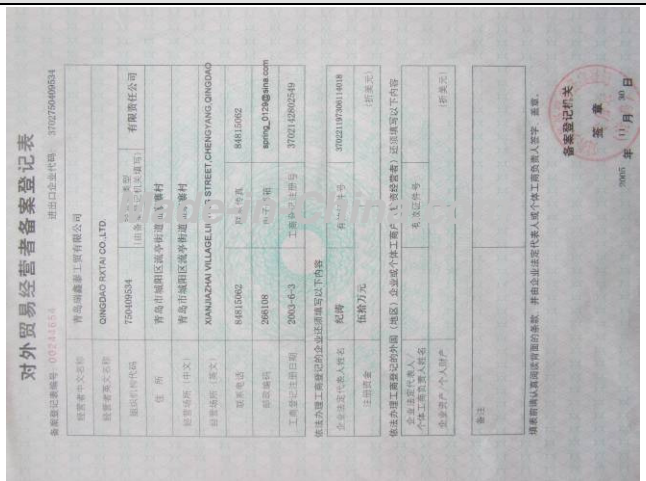 对外贸易经营者备案登记表
备案登记表编号: 00244654 进出口企业代码: 3702750409534
经营者中文名称 青岛瑞鑫泰工贸有限公司
经营者英文名称 QINGDAO RXTAI CO.,LTD
组织机构代码 750409534 有限责任公司
(由备案登记机关填写)
住 所 青岛市城阳区流亭街道 寨村
经营场所(中文) 青岛市城阳区流亭街道 寨村
经营场所(英文) XIANJIAZHAI VILLAGE, STREET,CHENGYANG,QINGDAO
联系电话 84815062 联系传真 84815062
邮政编码 266108 电子邮箱 spring_0129@sina.com
工商登记注册日期 2003-6-3 工商登记注册号 3702142802549
依法办理工商登记的企业还须填写以下内容
企业法定代表人姓名 纪涛 有效证件号 370221197306114018
注册资金 伍拾万元 (折美元)
依法办理工商登记的外国(地区)企业或个体工商户(独资经营者)还须填写以下内容
企业法定代表人/
个体工商负责人姓名 有效证件号
企业资产/个人财产 (折美元)
备注
填表前请认真阅读背面的条款,并由企业法定代表人或个体工商负责人签字、盖章。
备案登记机关
签 章
2005 年 (11) 月 30 日
Made-in-China.com